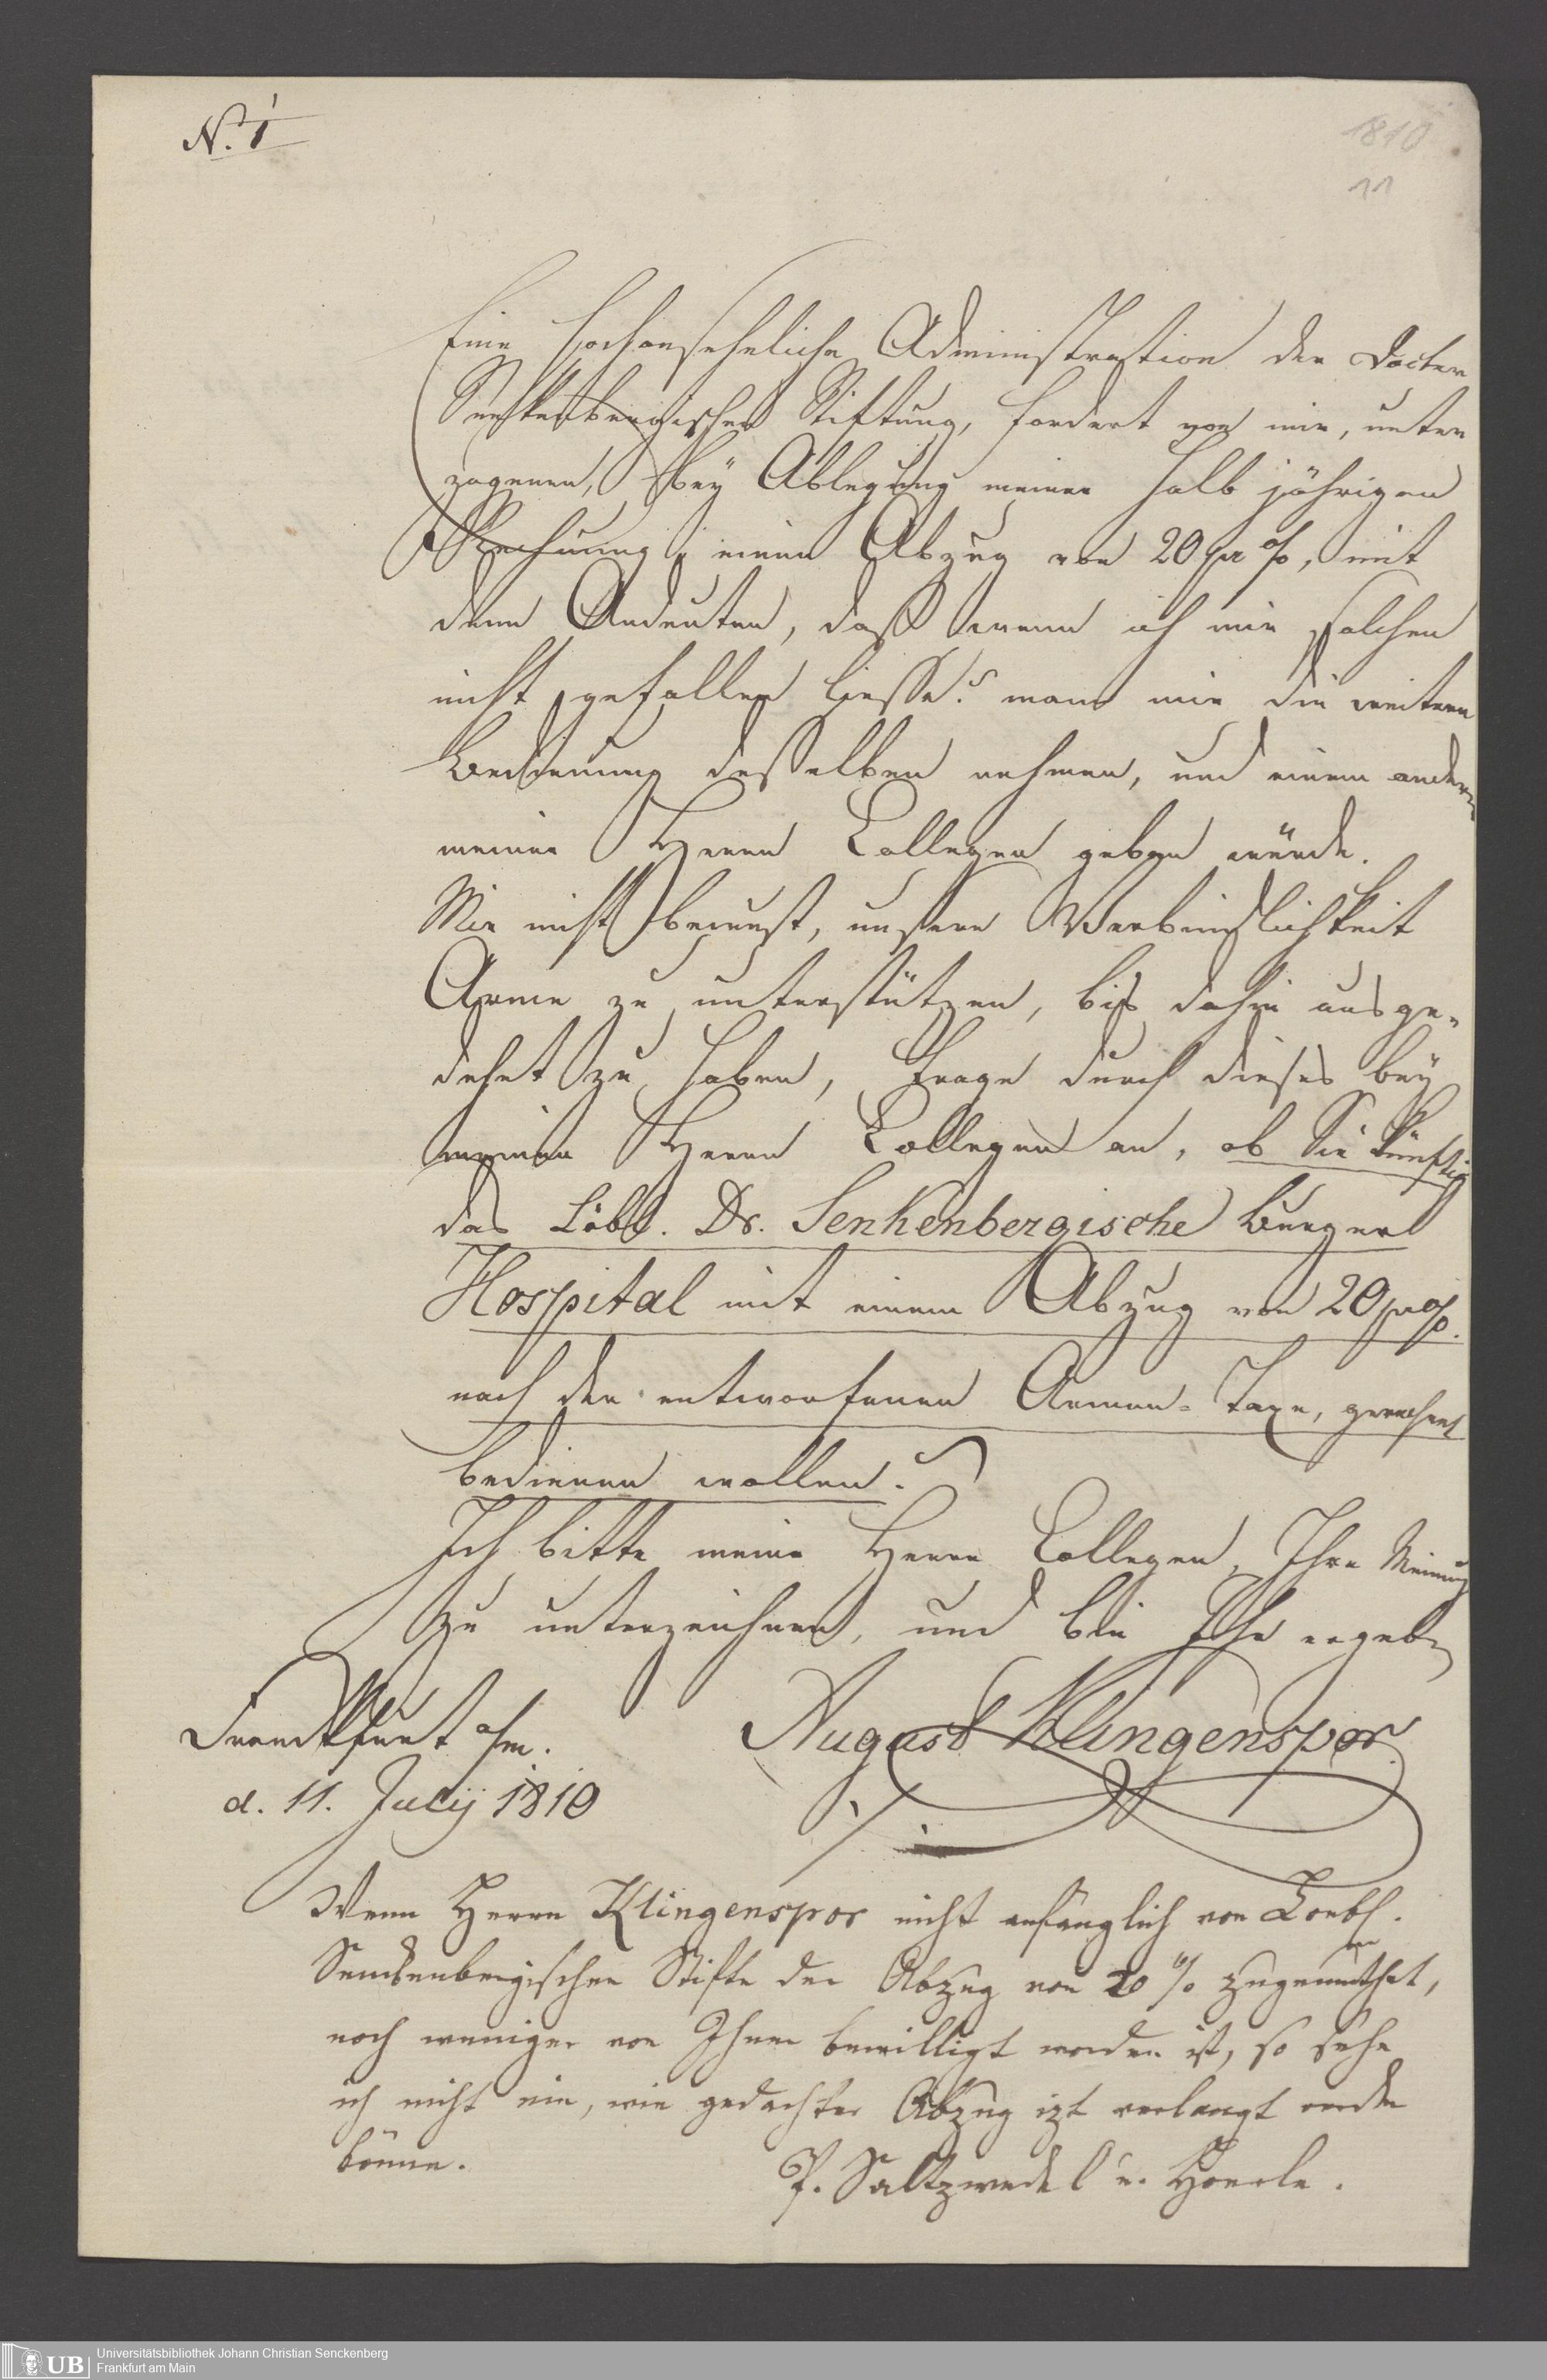 N. 1
1810
11
Eine Hochansehnliche Administration der Docter
Senkenbergischen Stiftung, fordert von mir, unter
zogenen, bey Ablegung meiner halb jährigen
Rechnung, einen Abzug von 20 pr %, mit
dem Andeuten, daß wenn ich mir solchen
nicht gefallen liesse? man mir die weitere
Bedienung desselben nehmen, und einem andern
meiner Herrn Collegen geben würde.
Mir nicht bewust, unsere Verbindlichkeit
Arme zu unterstützen, bis dahin ausge-
dehnt zu haben, frage durch dieses bey
meinen Herrn Collegen an, ob Sie künftig
das Löbl. Dr. Senkenbergische Burger
Hospital mit einem Abzug von 20 pr %.
nach der entworfenen Armen-Taxe, gerechnet
bedienen wollen?
Ich bitte meine Herrn Collegen, Ihre Meinung
zu unterzeichnen, und bin Ihr ergeb
Franckfurt a/m. August Klingenspor
d. 11. July 1810
Wenn Herrn Klingenspor nicht anfänglich von Loebl.
Senckenbergischen Stifte der Abzug von 20 % zugemuthet,
noch weniger von Ihnen bewilligt worden ist, so sehe
ich nicht ein, wie gedachter Abzug izt verlangt werden
könne.
P. Saltzwedel u. Hoerle.
UB Universitätsbibliothek Johann Christian Senckenberg
Frankfurt am Main